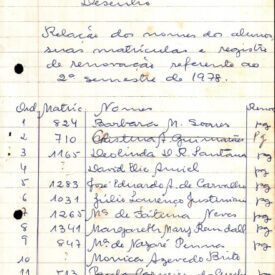 Desenho
Relação dos nomes dos alunos
suas matrículas e registro
de renovação referente ao
2º semestre de 1978.
Ord Matric. Nomes Renov
1 824 Barbara M. Soares pg
2 710 Cristina A. Guimarães Pg
3 1165 Deolinda D. R. Santana pg
4 David Elie Amiel
5 1283 José Eduardo A. de Carvalho pg
6 1031 Júlio Lourenço Justiniano pg
7 1265 Mª de Fátima Neves pg
8 1341 Margareth Mary Randall pg
9 847 Mª de Nazaré Penna pg
10 Monica Azevedo Brito
11